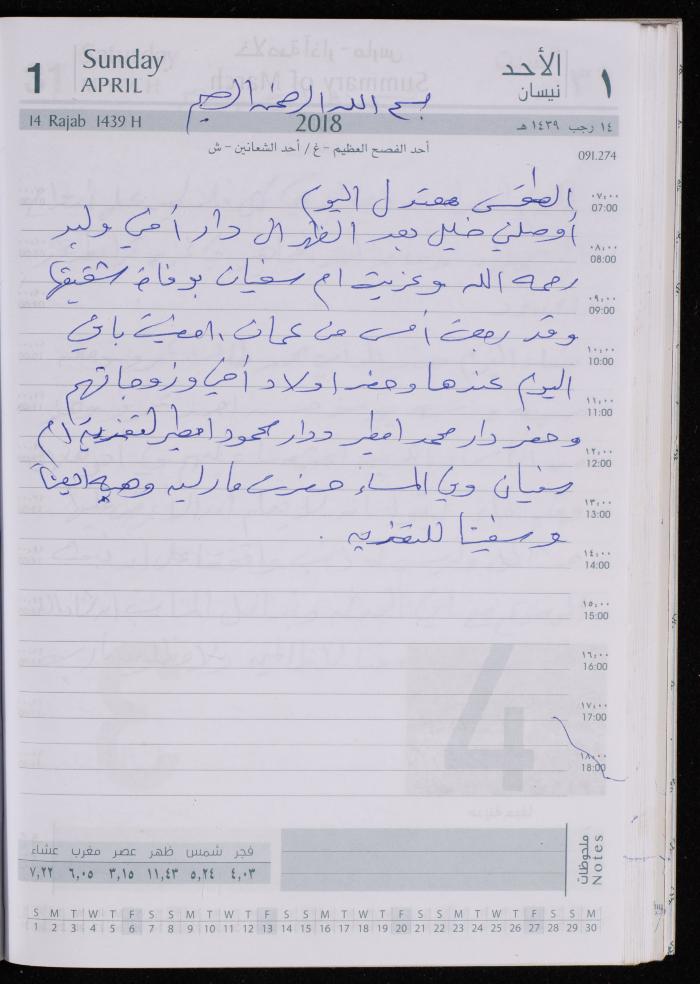 1 Sunday APRIL الأحد نيسان ١
بسم الله الرحمن الرحيم
14 Rajab 1439 H 2018 ١٤ رجب ١٤٣٩ هـ
أحد الفصح العظيم -غ/ أحد الشعانين - ش
091.274
الطقس معتدل اليوم
٠٧:٠٠ 07:00
أوصلني خليل بعد الظهر الى دار أخي وليد
٠٨:٠٠ 08:00
رحمه الله وعزيت ام سفيان بوفاة شقيقها
٠٩:٠٠ 09:00
وقد رجعت أمس من عمان
١٠:٠٠ 10:00
اليوم عندها وحضر اولاد أخي وزوجاتهم
١١:٠٠ 11:00
وحضر دار محمد ودار محمود لتعزية ام
١٢:٠٠ 12:00
سفيان وفي المساء حضرت
١٣:٠٠ 13:00
للتعزيه .
١٤:٠٠ 14:00
١٥:٠٠ 15:00
١٦:٠٠ 16:00
١٧:٠٠ 17:00
١٨:٠٠ 18:00
ملحوظات Notes
فجر شمس ظهر عصر مغرب عشاء
٤,٠٣ ٥,٢٤ ١١,٤٣ ٣,١٥ ٦,٠٥ ٧,٢٢
S M T W T F S S M T W T F S S M T W T F S S M T W T F S S M
1 2 3 4 5 6 7 8 9 10 11 12 13 14 15 16 17 18 19 20 21 22 23 24 25 26 27 28 29 30